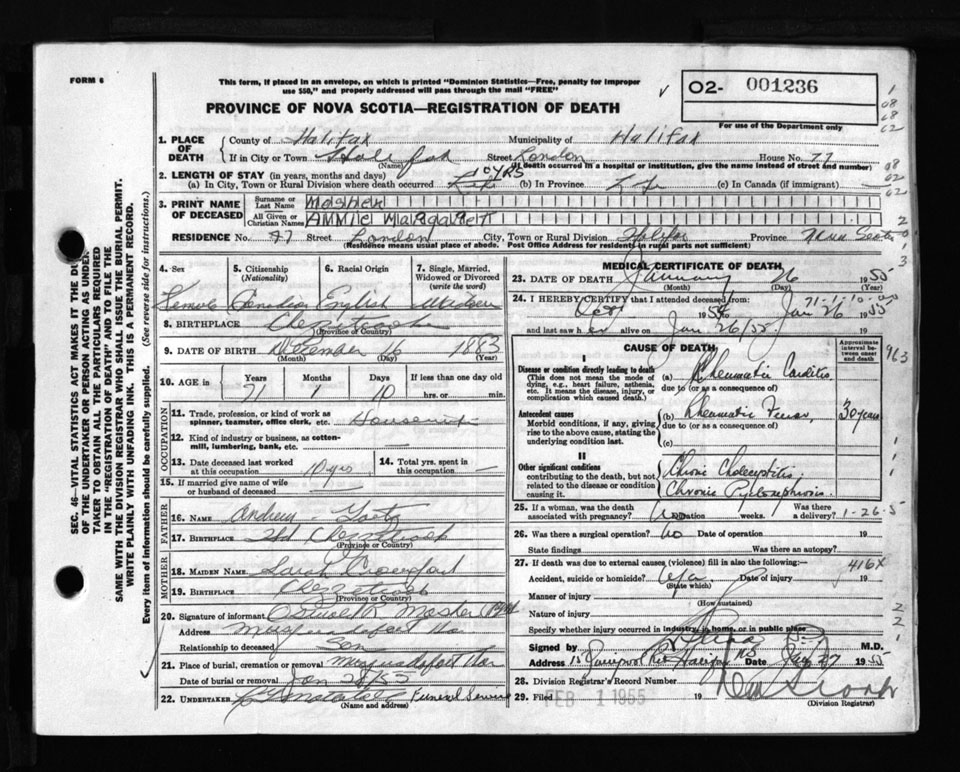 FORM 6
This form, if placed in an envelope, on which is printed "Dominion Statistics—Free, penalty for improper
use $50," and properly addressed will pass through the mail "FREE"
PROVINCE OF NOVA SCOTIA—REGISTRATION OF DEATH
O2- 001236
For use of the Department only
SEC. 46—VITAL STATISTICS ACT MAKES IT THE DUTY
OF THE UNDERTAKER OR PERSON ACTING AS UNDER-
TAKER TO OBTAIN ALL THE PARTICULARS REQUIRED
IN THE "REGISTRATION OF DEATH" AND TO FILE THE
SAME WITH THE DIVISION REGISTRAR WHO SHALL ISSUE THE BURIAL PERMIT.
WRITE PLAINLY WITH UNFADING INK. THIS IS A PERMANENT RECORD.
Every item of information should be carefully supplied. (See reverse side for instructions.)
1. PLACE OF DEATH County of Halifax Municipality of Halifax
If in City or Town Halifax Street London House No. 77
(Name) (If death occurred in a hospital or institution, give the name instead of street and number)
2. LENGTH OF STAY (in years, months and days)
(a) In City, Town or Rural Division where death occurred 10 YRS (b) In Province Life (c) In Canada (if immigrant)
3. PRINT NAME OF DECEASED Surname or Last Name Mosher
All Given or Christian Names ANNIE MARGARET
RESIDENCE No. 77 Street London City, Town or Rural Division Halifax Province Nova Scotia
(Residence means usual place of abode. Post Office Address for residents in rural parts not sufficient)
4. Sex 5. Citizenship (Nationality) 6. Racial Origin 7. Single, Married, Widowed or Divorced (write the word)
Female Canadian English Widow
8. BIRTHPLACE Chezzetcook
(Province or Country)
9. DATE OF BIRTH December 16 1883
(Month) (Day) (Year)
10. AGE in Years Months Days If less than one day old
71 1 10 hrs. or min.
OCCUPATION
11. Trade, profession, or kind of work as spinner, teamster, office clerk, etc. Housewife
12. Kind of industry or business, as cotton-mill, lumbering, bank, etc.
13. Date deceased last worked at this occupation 10 yrs 14. Total yrs. spent in this occupation
15. If married give name of wife or husband of deceased
FATHER
16. NAME Andrew
17. BIRTHPLACE Chezzetcook
(Province or Country)
MOTHER
18. MAIDEN NAME Sarah Crawford
19. BIRTHPLACE Chezzetcook
(Province or Country)
20. Signature of informant Mosher
Address Musquodoboit Hbr
Relationship to deceased Son
21. Place of burial, cremation or removal Musquodoboit Har
Date of burial or removal Jan 28/55
22. UNDERTAKER Funeral Service
(Name and address)
MEDICAL CERTIFICATE OF DEATH
23. DATE OF DEATH January 26 1955
(Month) (Day)
71-1-10
24. I HEREBY CERTIFY that I attended deceased from:
Oct 1954 to Jan 26 1955
and last saw her alive on Jan 26/55. 19
CAUSE OF DEATH
Approximate interval between onset and death
I
Disease or condition directly leading to death
(This does not mean the mode of dying, e.g., heart failure, asthenia, etc. It means the disease, injury, or complication which caused death.)
(a) Rheumatic Carditis
due to (or as a consequence of)
Antecedent causes
Morbid conditions, if any, giving rise to the above cause, stating the underlying condition last.
(b) Rheumatic Fever 30 years
due to (or as a consequence of)
(c)
II
Other significant conditions
contributing to the death, but not related to the disease or condition causing it.
Chronic Cholecystitis
Chronic Pyelonephrosis
25. If a woman, was the death associated with pregnancy? No Duration weeks. Was there a delivery? 1-26-5
26. Was there a surgical operation? No Date of operation 19
State findings Was there an autopsy?
27. If death was due to external causes (violence) fill in also the following:-
416X
Accident, suicide or homicide? Date of injury 19
(State which)
Manner of injury
(How sustained)
Nature of injury
Specify whether injury occurred in industry, in home, or in public place
Signed by M.D.
Address Halifax NS Date Jan 27 1955
28. Division Registrar's Record Number
29. Filed FEB 1 1955 19
(Division Registrar)
963